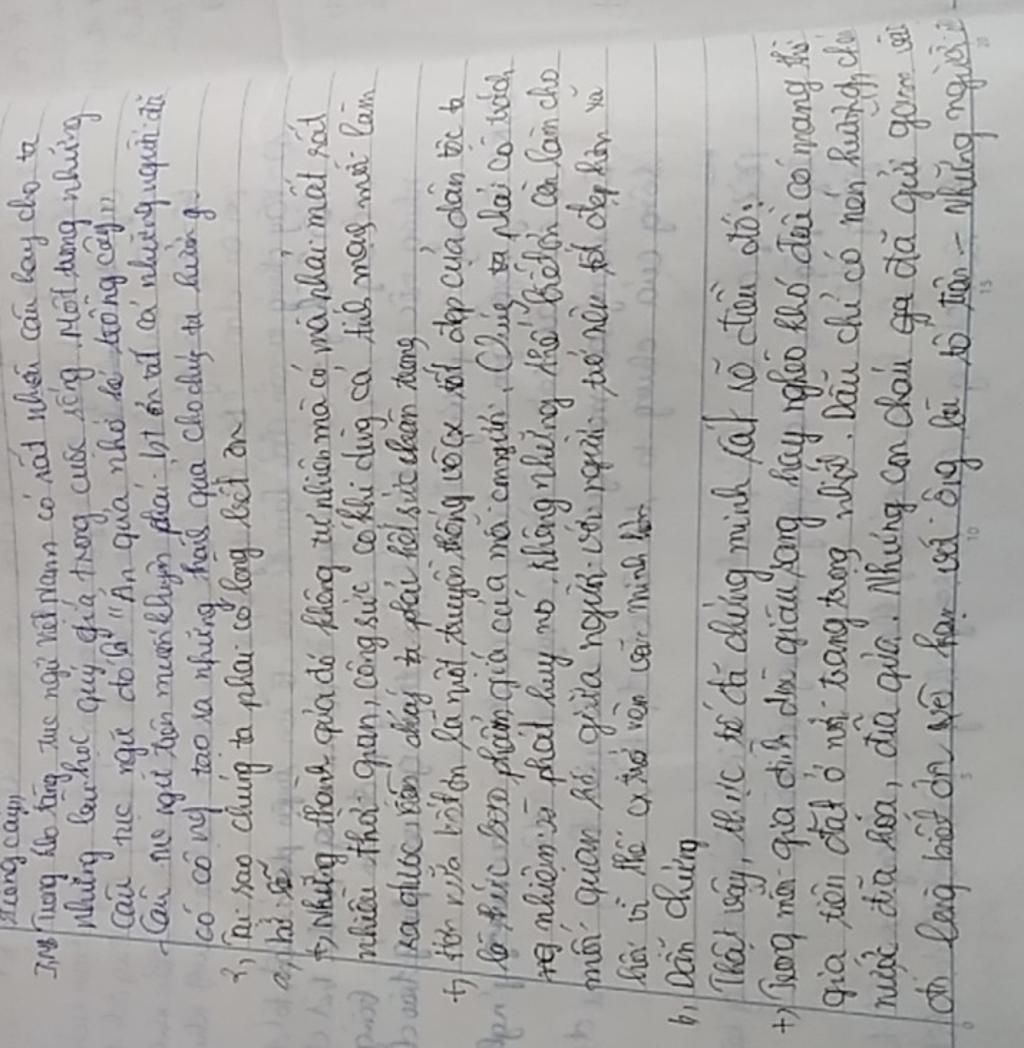 trồng cây"
Trong kho tàng tục ngữ Việt Nam có rất nhiều câu hay cho ta
những bài học quý giá trong cuộc sống. Một trong những
câu tục ngữ đó là "Ăn quả nhớ kẻ trồng cây"
- Câu tục ngữ trên muốn khuyên phải biết ơn tất cả những người đã
có công tạo ra những thành quả cho chúng ta hưởng
2, Tại sao chúng ta phải có lòng biết ơn
a, Lí lẽ
+, Những thành quả đó không tự nhiên mà có và phải mất rất
nhiều thời gian, công sức có khi dùng cả tính mạng mới làm
ra được nên chúng ta phải hết sức trân trọng
+, Hơn nữa biết ơn là một truyền thống vô cx tốt đẹp của dân tộc ta
là thức phẩm giá của mỗi con người. Chúng ta phải có trách
nhiệm phát huy nó, không những thế biết ơn còn làm cho
mối quan hệ giữa người với người trở nên tốt đẹp hơn và
vì thế trở nên văn minh
b, Dẫn chứng
Thật vậy, thực tế đã chứng minh rất rõ điều đó:
+, Trong mỗi gia đình dù giàu sang hay nghèo khó đều có mang thờ
gia tiên đặt ở nơi trang trọng nhất. Dẫu chỉ có nén hương, chén
nước đĩa hoa, đĩa quả. Nhưng con cháu đã gửi gắm
lòng biết ơn với ông bà tổ tiên - Những người